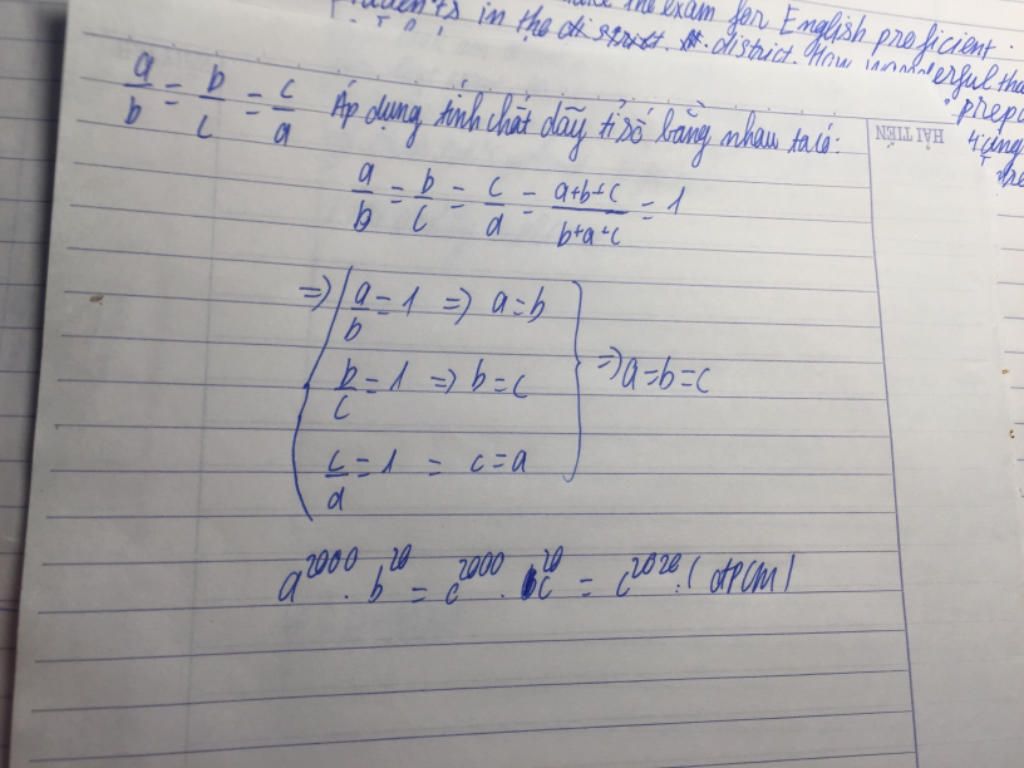 the exam for English proficient.
in the district. How
erful tha
prepa
HẢI TIẾN
a/b = b/c = c/a Áp dụng tính chất dãy tỉ số bằng nhau ta có:
a/b = b/c = c/a = a+b+c/b+a+c = 1
=> a/b = 1 => a=b
b/c = 1 => b=c
=> a=b=c
c/a = 1 = c=a
a^2000 . b^20 = c^2000 . c^20 = c^2020. ( đpcm )